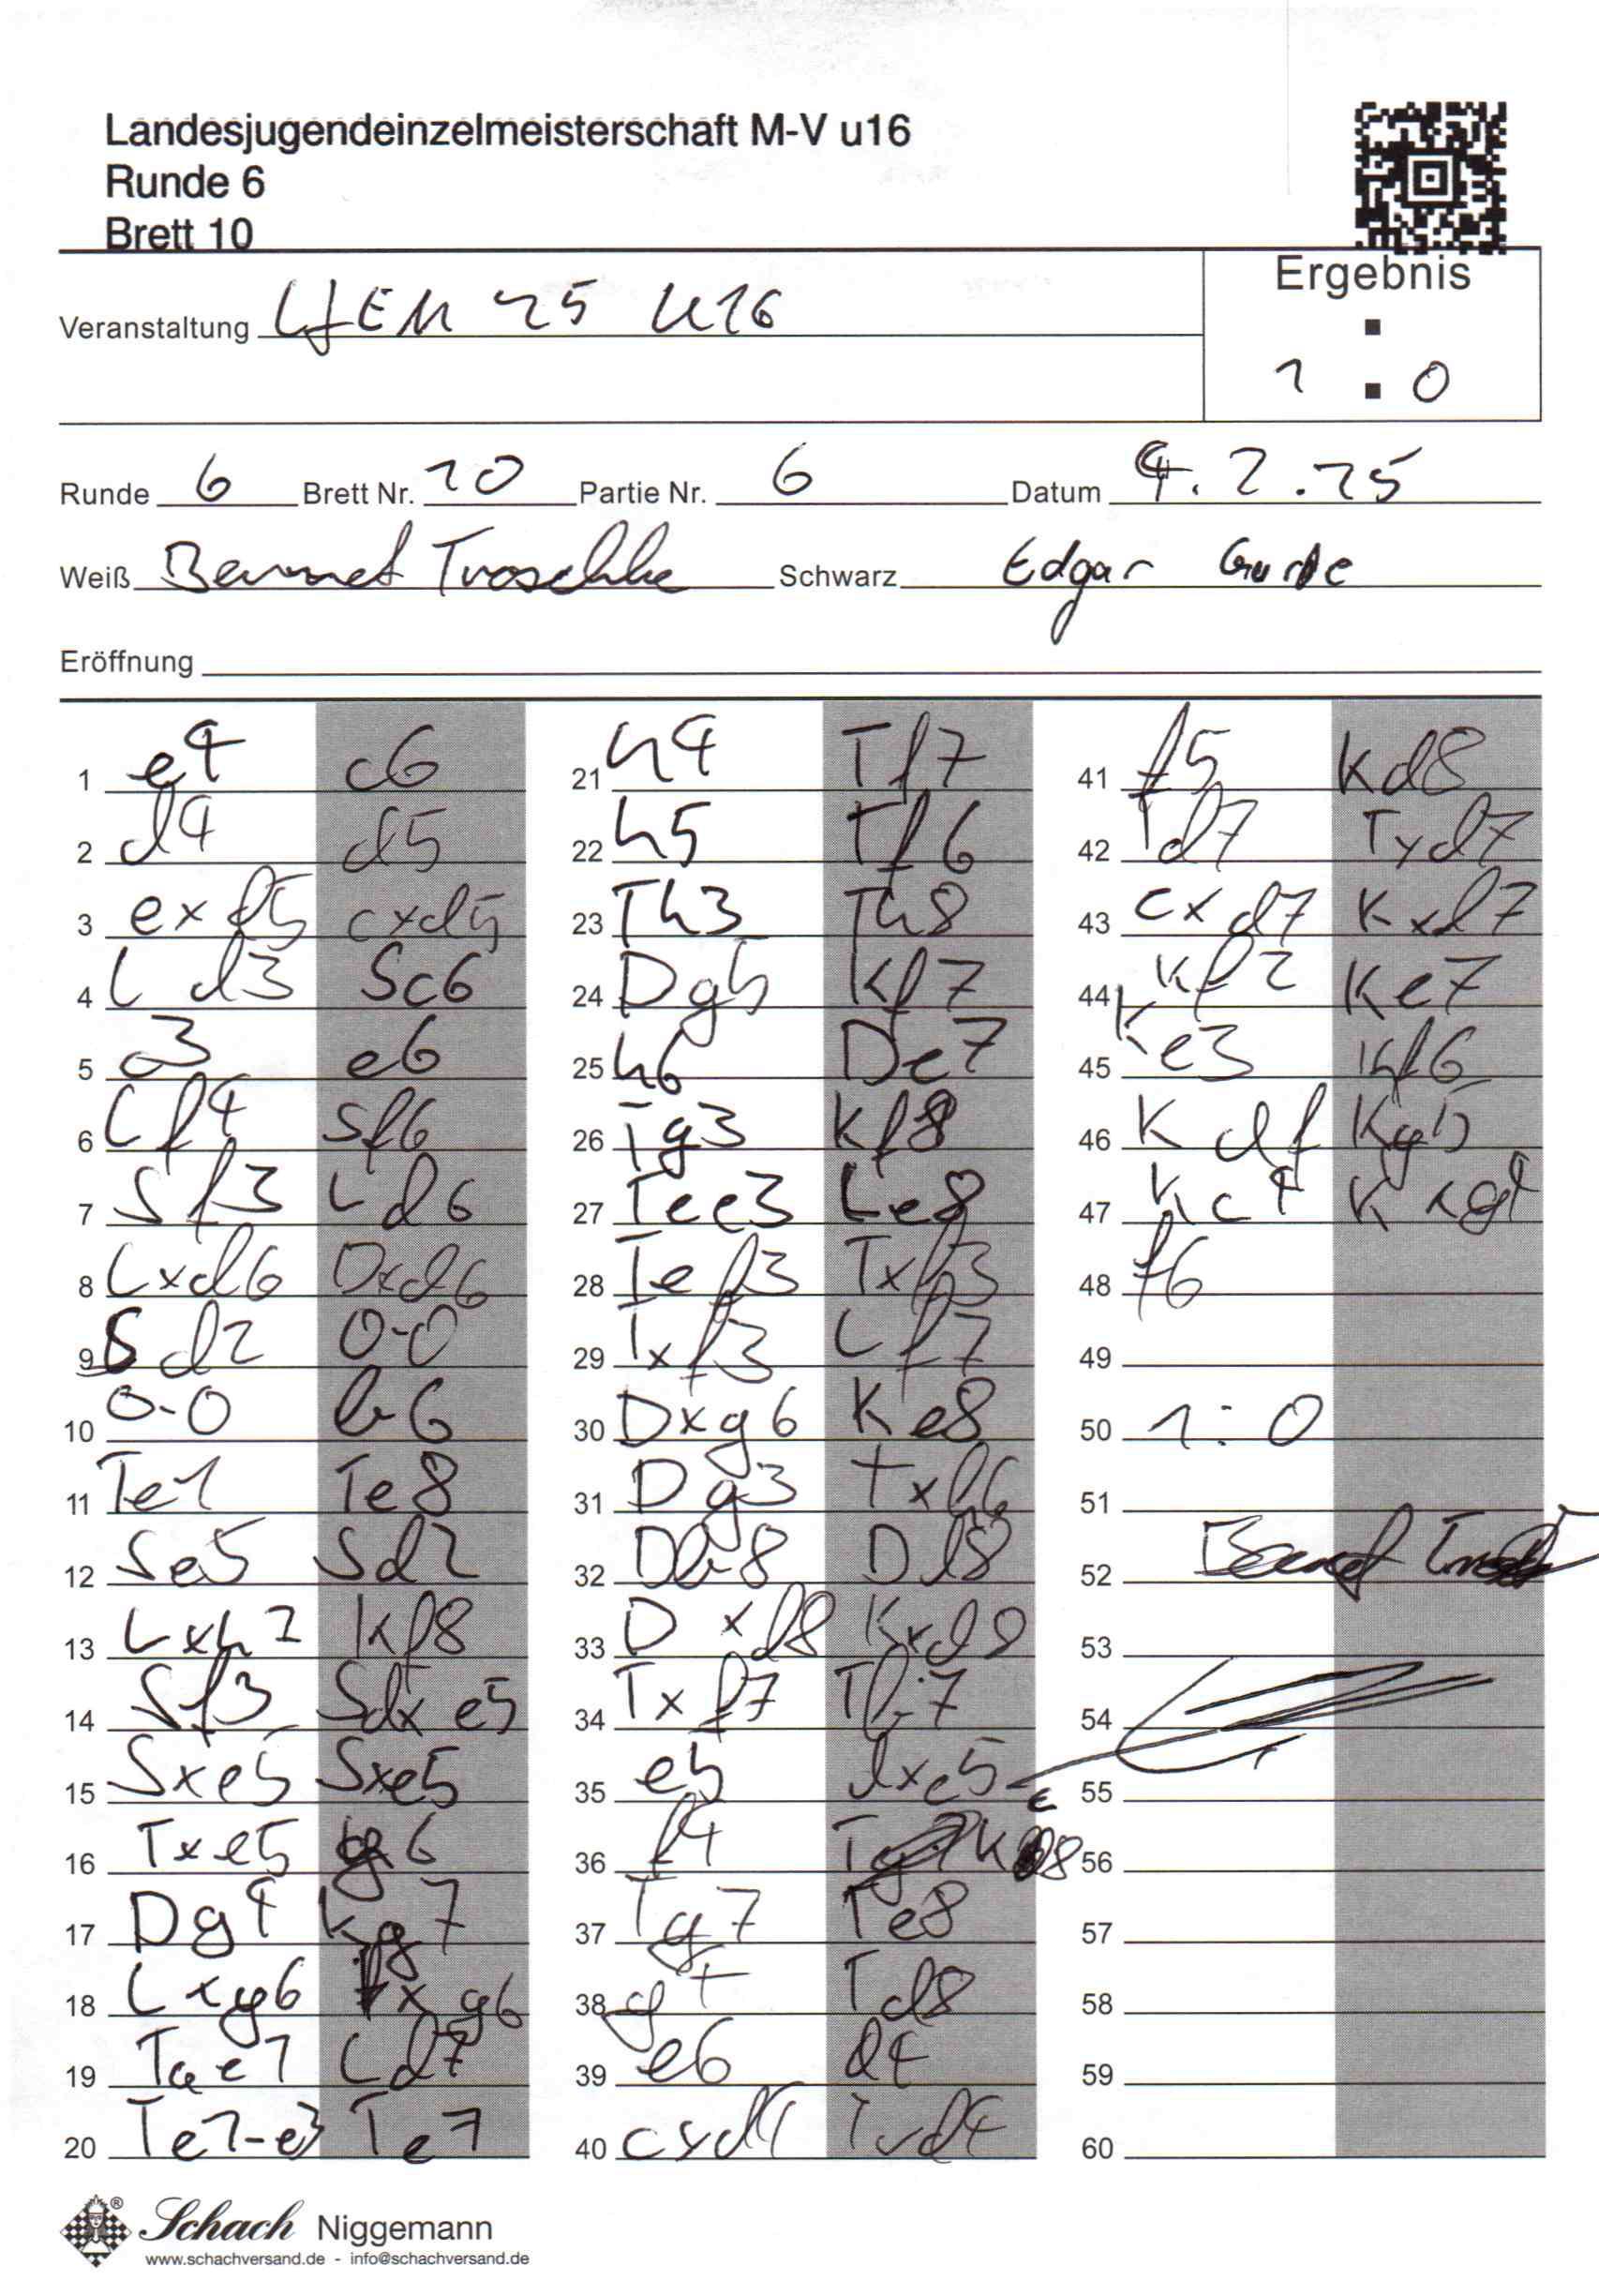 Landesjugendeinzelmeisterschaft M-V u16
Runde 6
Brett 10
Ergebnis
Veranstaltung LJEM 25 U16
1 : 0
Runde 6 Brett Nr. 10 Partie Nr. 6 Datum 4.2.25
Weiß Bennet Troschke Schwarz Edgar
Eröffnung
1 e4 c6
2 d4 d5
3 exd5 cxd5
4 Ld3 Sc6
5 c3 e6
6 Lf4 Sf6
7 Sf3 Ld6
8 Lxd6 Dxd6
9 Sd2 0-0
10 0-0 b6
11 Te1 Te8
12 Se5 Sd7
13 Lxh7 Kf8
14 Sf3 Sdxe5
15 Sxe5 Sxe5
16 Txe5 g6
17 Dg4 Kg7
18 Lxg6 fxg6
19 Tae1 Ld7
20 Te1-e3 Te7
21 h4 Tf7
22 h5 Tf6
23 Th3 Th8
24 Dg5 Kf7
25 h6 De7
26 Tg3 Kf8
27 Tee3 Le8
28 Tef3 Txf3
29 Txf3 Lf7
30 Dxg6 Ke8
31 Dg3 Txh6
32 Db8 Dd8
33 Dxd8 Kxd8
34 Txf7 Th7
35 e5 dxe5
36 f4 Ke8
37 Tg7 Te8
38 g4 Td8
39 e6 d4
40 cxd4 Txd4
41 f5 Kd8
42 Td7 Txd7
43 exd7 Kxd7
44 Kf2 Ke7
45 Ke3 Kf6
46 Kd4 Kg5
47 Kc4 Kxg4
48 f6
49
50 1:0
51
52 Bennet Troschke
53
54
55
56
57
58
59
60
Schach Niggemann
www.schachversand.de - info@schachversand.de